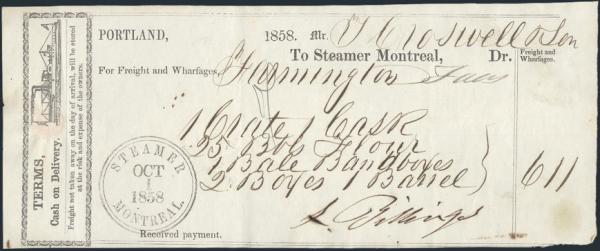 PORTLAND, 1858. Mr. T Croswell & Son
To Steamer Montreal, Dr.
Freight and Wharfage.
For Freight and Wharfages, Farmington
1 Crate 1 Cask
25 Bbs Flour
1 Bale Bandboxes
2 Boxes 1 Barrel } 6 11
L. Billings
Received payment.
STEAMER MONTREAL.
OCT
1
1858
TERMS,
Cash on Delivery.
Freight not taken away on the day of arrival, will be stored
at the risk and expense of the owners.